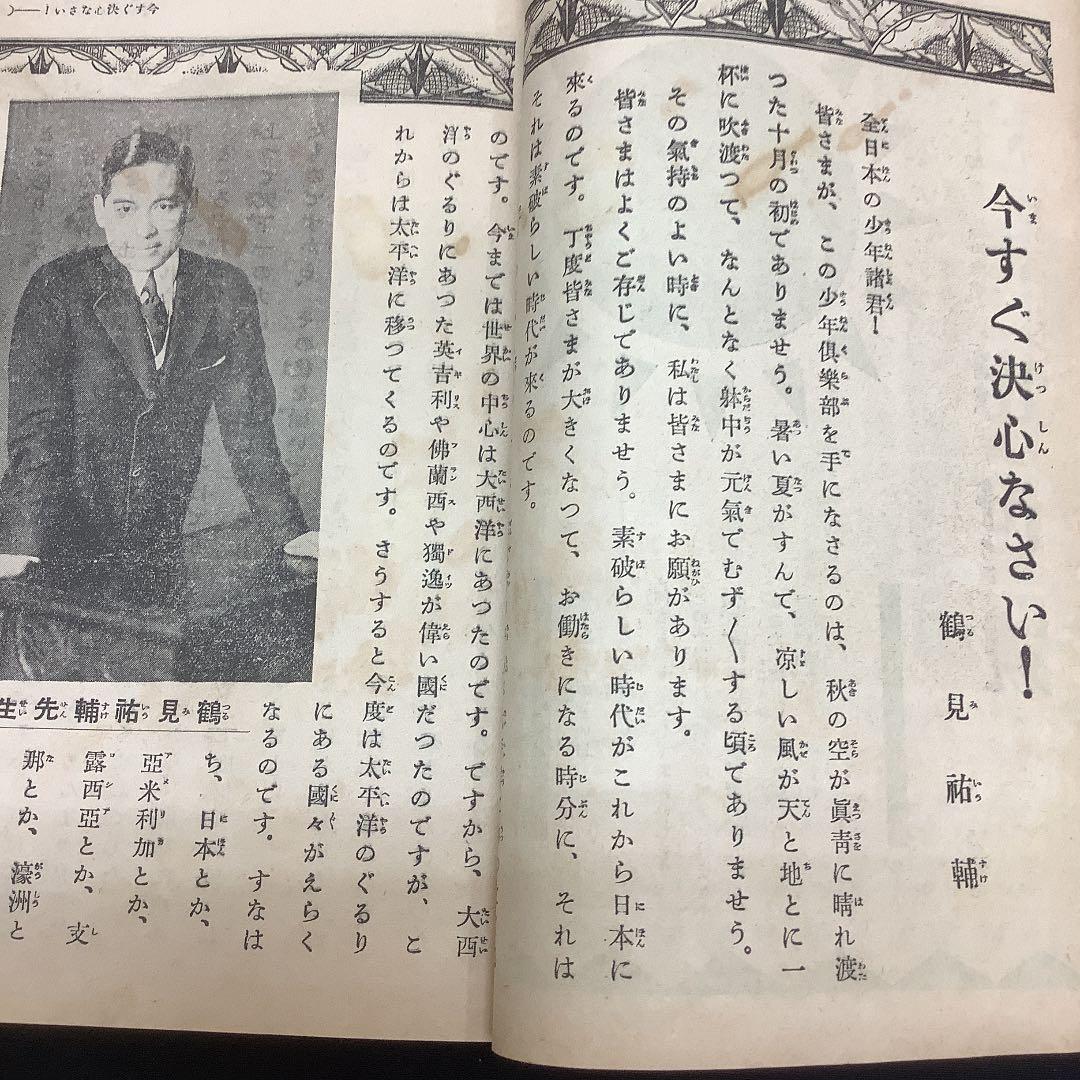 今すぐ決心なさい!
鶴見祐輔
全日本の少年諸君!
皆さまが、この少年倶樂部を手になさるのは、秋の空が眞靑に晴れ渡
つた十月の初でありませう。暑い夏がすんで、凉しい風が天と地とに一
杯に吹渡つて、なんとなく躰中が元氣でむず〱する頃でありませう。
その氣持のよい時に、私は皆さまにお願があります。
皆さまはよくご存じでありませう。素破らしい時代がこれから日本に
來るのです。丁度皆さまが大きくなつて、お働きになる時分に、それは
それは素破らしい時代が來るのです。
今すぐ決心なさい!
のです。今までは世界の中心は大西洋にあつたのです。ですから、大西
洋のぐるりにあつた英吉利や佛蘭西や獨逸が偉い國だつたのですが、こ
れからは太平洋に移つてくるのです。さうすると今度は太平洋のぐるり
にある國々がえらく
なるのです。すなは
ち、日本とか、
亞米利加とか、
露西亞とか、支
那とか、濠洲と
鶴見祐輔先生